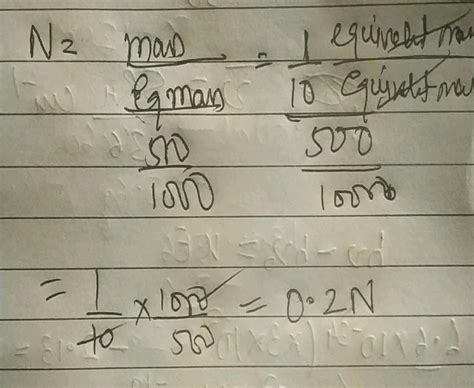 N = mass / Eq mass = 1 equivalent mass / 10 Equivalent mass
500 / 1000 500 / 1000
= 1/10 × 1000/500 = 0.2N